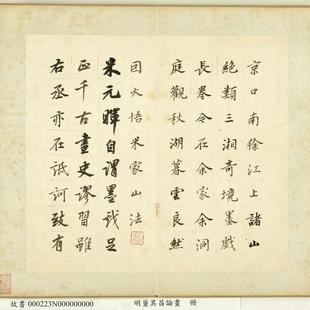 京口南徐江上諸山
絕類三湘奇境墨戲
長卷今在余家余洞
庭觀秋湖暮雲良然
因大悟米家山法
米元暉自謂墨戲足
正千古畫史謬習雖
右丞亦在詆訶致有
故書 000223N000000000 明董其昌論畫 冊